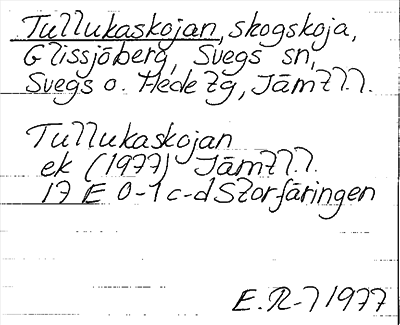 Tullukaskojan, skogskoja,
Glissjöberg, Svegs sn,
Svegs o. Hede tg, Jämtl l.
Tullukaskojan
ek (1977) Jämtl l.
17 E 0-1 c-d Storfäringen
E.R-7 1977